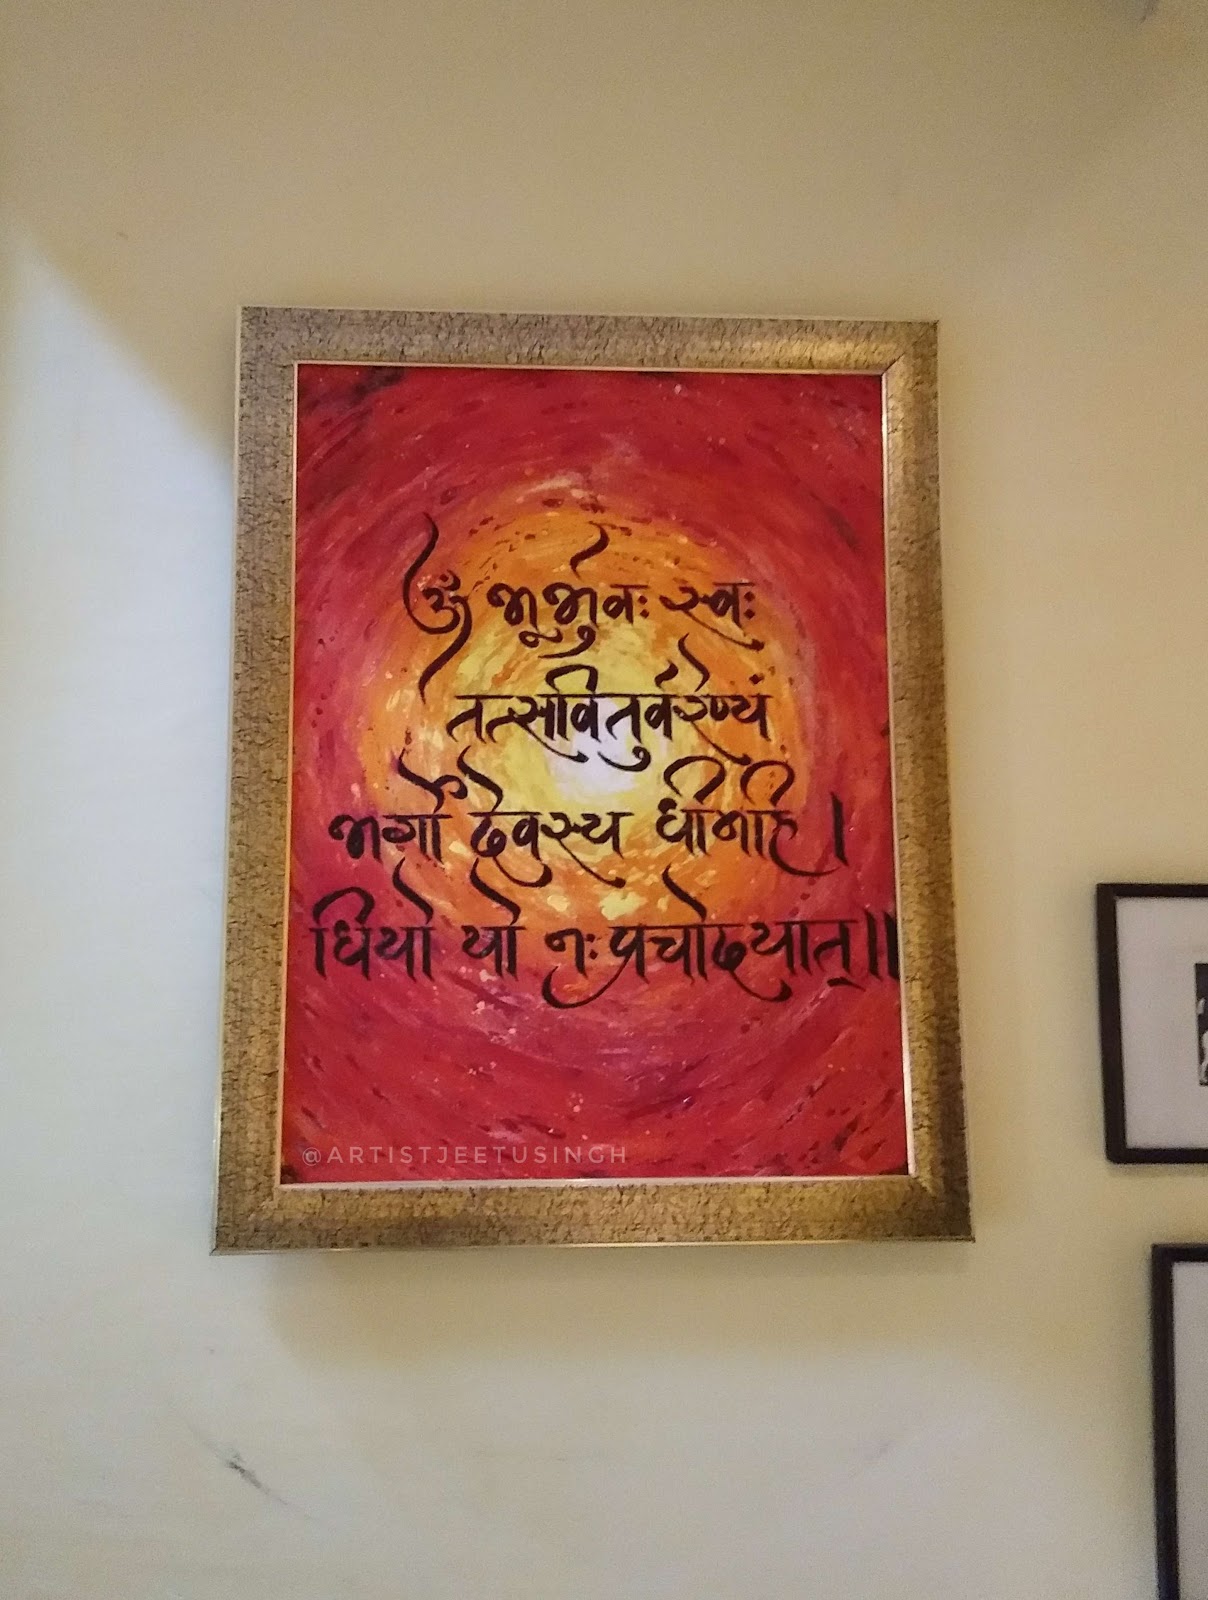 ॐ भूर्भुवः स्वः
तत्सवितुर्वरेण्यं
भर्गो देवस्य धीमहि ।
धियो यो नः प्रचोदयात् ॥
@ARTISTJEETUSINGH